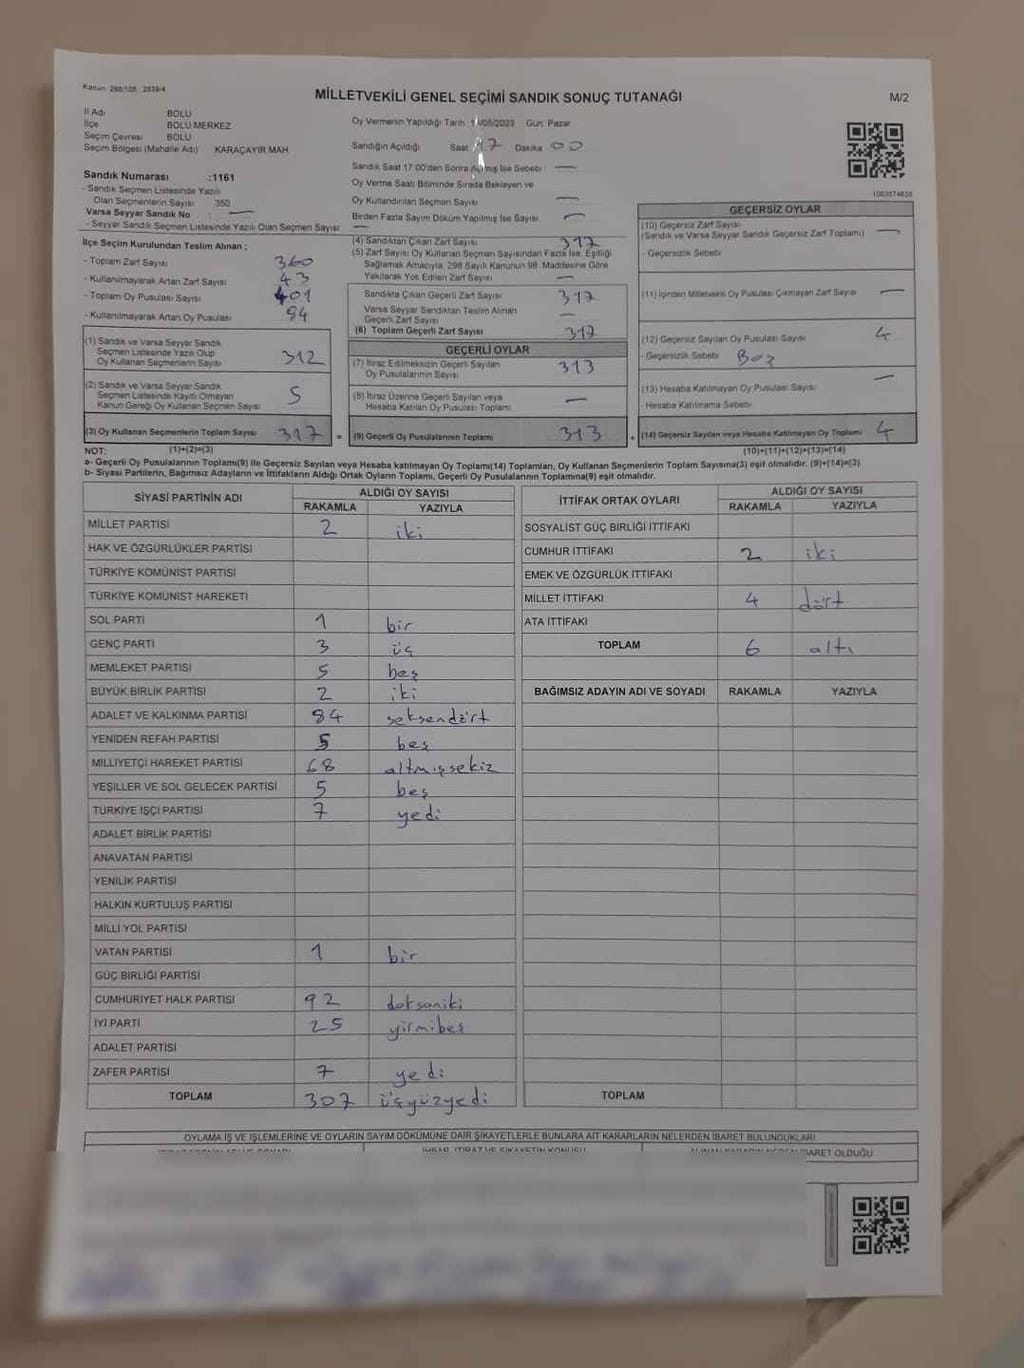 Kanun: 298/105 - 2839/4
MİLLETVEKİLİ GENEL SEÇİMİ SANDIK SONUÇ TUTANAĞI
M/2
İl Adı BOLU
İlçe BOLU MERKEZ
Seçim Çevresi BOLU
Seçim Bölgesi (Mahalle Adı) KARAÇAYIR MAH.
Sandık Numarası :1161
- Sandık Seçmen Listesinde Yazılı
Olan Seçmenlerin Sayısı 350
Varsa Seyyar Sandık No : —
- Seyyar Sandık Seçmen Listesinde Yazılı Olan Seçmen Sayısı —
Oy Vermenin Yapıldığı Tarih /05/2023 Gün: Pazar
Sandığın Açıldığı Saat 17 Dakika 00
Sandık Saat 17:00'den Sonra Açılmış İse Sebebi —
Oy Verme Saati Bitiminde Sırada Bekleyen ve
Oy Kullandırılan Seçmen Sayısı —
Birden Fazla Sayım Döküm Yapılmış İse Sayısı —
1003574635
İlçe Seçim Kurulundan Teslim Alınan ;
- Toplam Zarf Sayısı 360
- Kullanılmayarak Artan Zarf Sayısı 43
- Toplam Oy Pusulası Sayısı 401
- Kullanılmayarak Artan Oy Pusulası 84
(1) Sandık ve Varsa Seyyar Sandık
Seçmen Listesinde Yazılı Olup
Oy Kullanan Seçmenlerin Sayısı 312
(2) Sandık ve Varsa Seyyar Sandık
Seçmen Listesinde Kayıtlı Olmayan
Kanun Gereği Oy Kullanan Seçmen Sayısı 5
(3) Oy Kullanan Seçmenlerin Toplam Sayısı 317
(4) Sandıktan Çıkan Zarf Sayısı 317
(5) Zarf Sayısı Oy Kullanan Seçmen Sayısından Fazla İse, Eşitliği
Sağlamak Amacıyla, 298 Sayılı Kanunun 98. Maddesine Göre
Yakılarak Yok Edilen Zarf Sayısı —
Sandıkta Çıkan Geçerli Zarf Sayısı 317
Varsa Seyyar Sandıktan Teslim Alınan
Geçerli Zarf Sayısı —
(6) Toplam Geçerli Zarf Sayısı 317
GEÇERLİ OYLAR
(7) İtiraz Edilmeksizin Geçerli Sayılan
Oy Pusulalarının Sayısı 313
(8) İtiraz Üzerine Geçerli Sayılan veya
Hesaba Katılan Oy Pusulası Toplamı —
= (9) Geçerli Oy Pusulalarının Toplamı 313
GEÇERSİZ OYLAR
(10) Geçersiz Zarf Sayısı
(Sandık ve Varsa Seyyar Sandık Geçersiz Zarf Toplamı) —
- Geçersizlik Sebebi
(11) İçinden Milletvekili Oy Pusulası Çıkmayan Zarf Sayısı —
(12) Geçersiz Sayılan Oy Pusulası Sayısı 4
- Geçersizlik Sebebi Boş
(13) Hesaba Katılmayan Oy Pusulası Sayısı —
- Hesaba Katılmama Sebebi
+ (14) Geçersiz Sayılan veya Hesaba Katılmayan Oy Toplamı 4
NOT: (1)+(2)=(3) (10)+(11)+(12)+(13)=(14)
a- Geçerli Oy Pusulalarının Toplamı(9) ile Geçersiz Sayılan veya Hesaba katılmayan Oy Toplamı(14) Toplamları, Oy Kullanan Seçmenlerin Toplam Sayısına(3) eşit olmalıdır. (9)+(14)=(3)
b- Siyasi Partilerin, Bağımsız Adayların ve İttifakların Aldığı Ortak Oyların Toplamı, Geçerli Oy Pusulalarının Toplamına(9) eşit olmalıdır.
SİYASİ PARTİNİN ADI ALDIĞI OY SAYISI
RAKAMLA YAZIYLA
MİLLET PARTİSİ 2 iki
HAK VE ÖZGÜRLÜKLER PARTİSİ
TÜRKİYE KOMÜNİST PARTİSİ
TÜRKİYE KOMÜNİST HAREKETİ
SOL PARTİ 1 bir
GENÇ PARTİ 3 üç
MEMLEKET PARTİSİ 5 beş
BÜYÜK BİRLİK PARTİSİ 2 iki
ADALET VE KALKINMA PARTİSİ 84 seksendört
YENİDEN REFAH PARTİSİ 5 beş
MİLLİYETÇİ HAREKET PARTİSİ 68 altmışsekiz
YEŞİLLER VE SOL GELECEK PARTİSİ 5 beş
TÜRKİYE İŞÇİ PARTİSİ 7 yedi
ADALET BİRLİK PARTİSİ
ANAVATAN PARTİSİ
YENİLİK PARTİSİ
HALKIN KURTULUŞ PARTİSİ
MİLLİ YOL PARTİSİ
VATAN PARTİSİ 1 bir
GÜÇ BİRLİĞİ PARTİSİ
CUMHURİYET HALK PARTİSİ 92 doksaniki
İYİ PARTİ 25 yirmibeş
ADALET PARTİSİ
ZAFER PARTİSİ 7 yedi
TOPLAM 307 üçyüzyedi
İTTİFAK ORTAK OYLARI ALDIĞI OY SAYISI
RAKAMLA YAZIYLA
SOSYALİST GÜÇ BİRLİĞİ İTTİFAKI
CUMHUR İTTİFAKI 2 iki
EMEK VE ÖZGÜRLÜK İTTİFAKI
MİLLET İTTİFAKI 4 dört
ATA İTTİFAKI
TOPLAM 6 altı
BAĞIMSIZ ADAYIN ADI VE SOYADI RAKAMLA YAZIYLA
TOPLAM
OYLAMA İŞ VE İŞLEMLERİNE VE OYLARIN SAYIM DÖKÜMÜNE DAİR ŞİKAYETLERLE BUNLARA AİT KARARLARIN NELERDEN İBARET BULUNDUKLARI
İHBAR, İTİRAZ VE ŞİKAYETİN KONUSU İBARET OLDUĞU